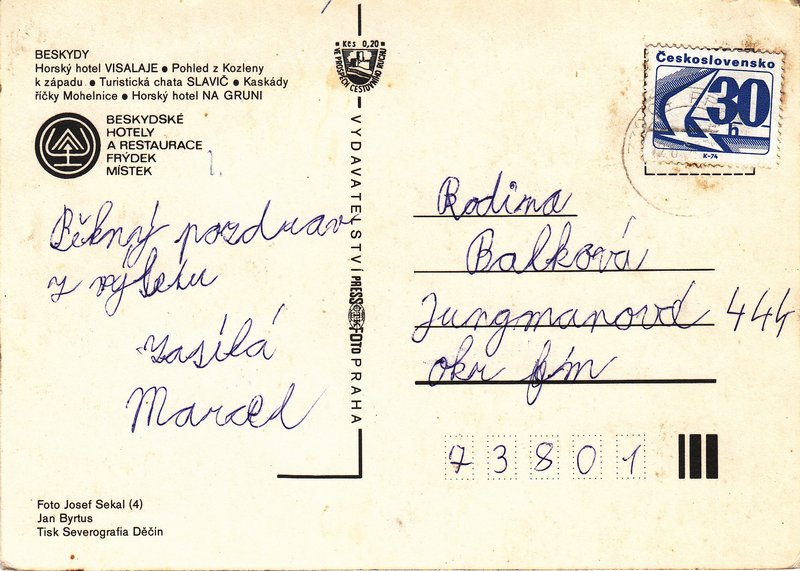 BESKYDY
Horský hotel VISALAJE • Pohled z Kozleny
k západu • Turistická chata SLAVIČ • Kaskády
říčky Mohelnice • Horský hotel NA GRUNI
BESKYDSKÉ
HOTELY
A RESTAURACE
FRÝDEK
MÍSTEK
1.
Běkný pozdrav
z výletu
zasílá
Marcel
Foto Josef Sekal (4)
Jan Byrtus
Tisk Severografia Děčín
Kčs 0,20
VE PROSPĚCH CESTOVNÍHO RUCHU
VYDAVATELSTVÍ PRESSFOTO PRAHA
Československo
30
h
K-74
Rodina
Balková
Jungmanová 444
okr fjm
73801